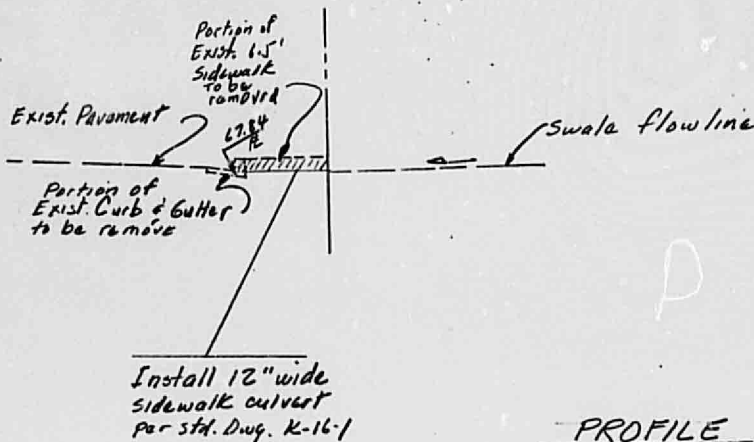 Portion of
Exist. 6.5'
Sidewalk
to be
removed
Exist. Pavament
67.84
Swale flowline
Portion of
Exist. Curb & Gutter
to be remove
Install 12" wide
sidewalk culvert
per std. Dwg. K-16-1
PROFILE